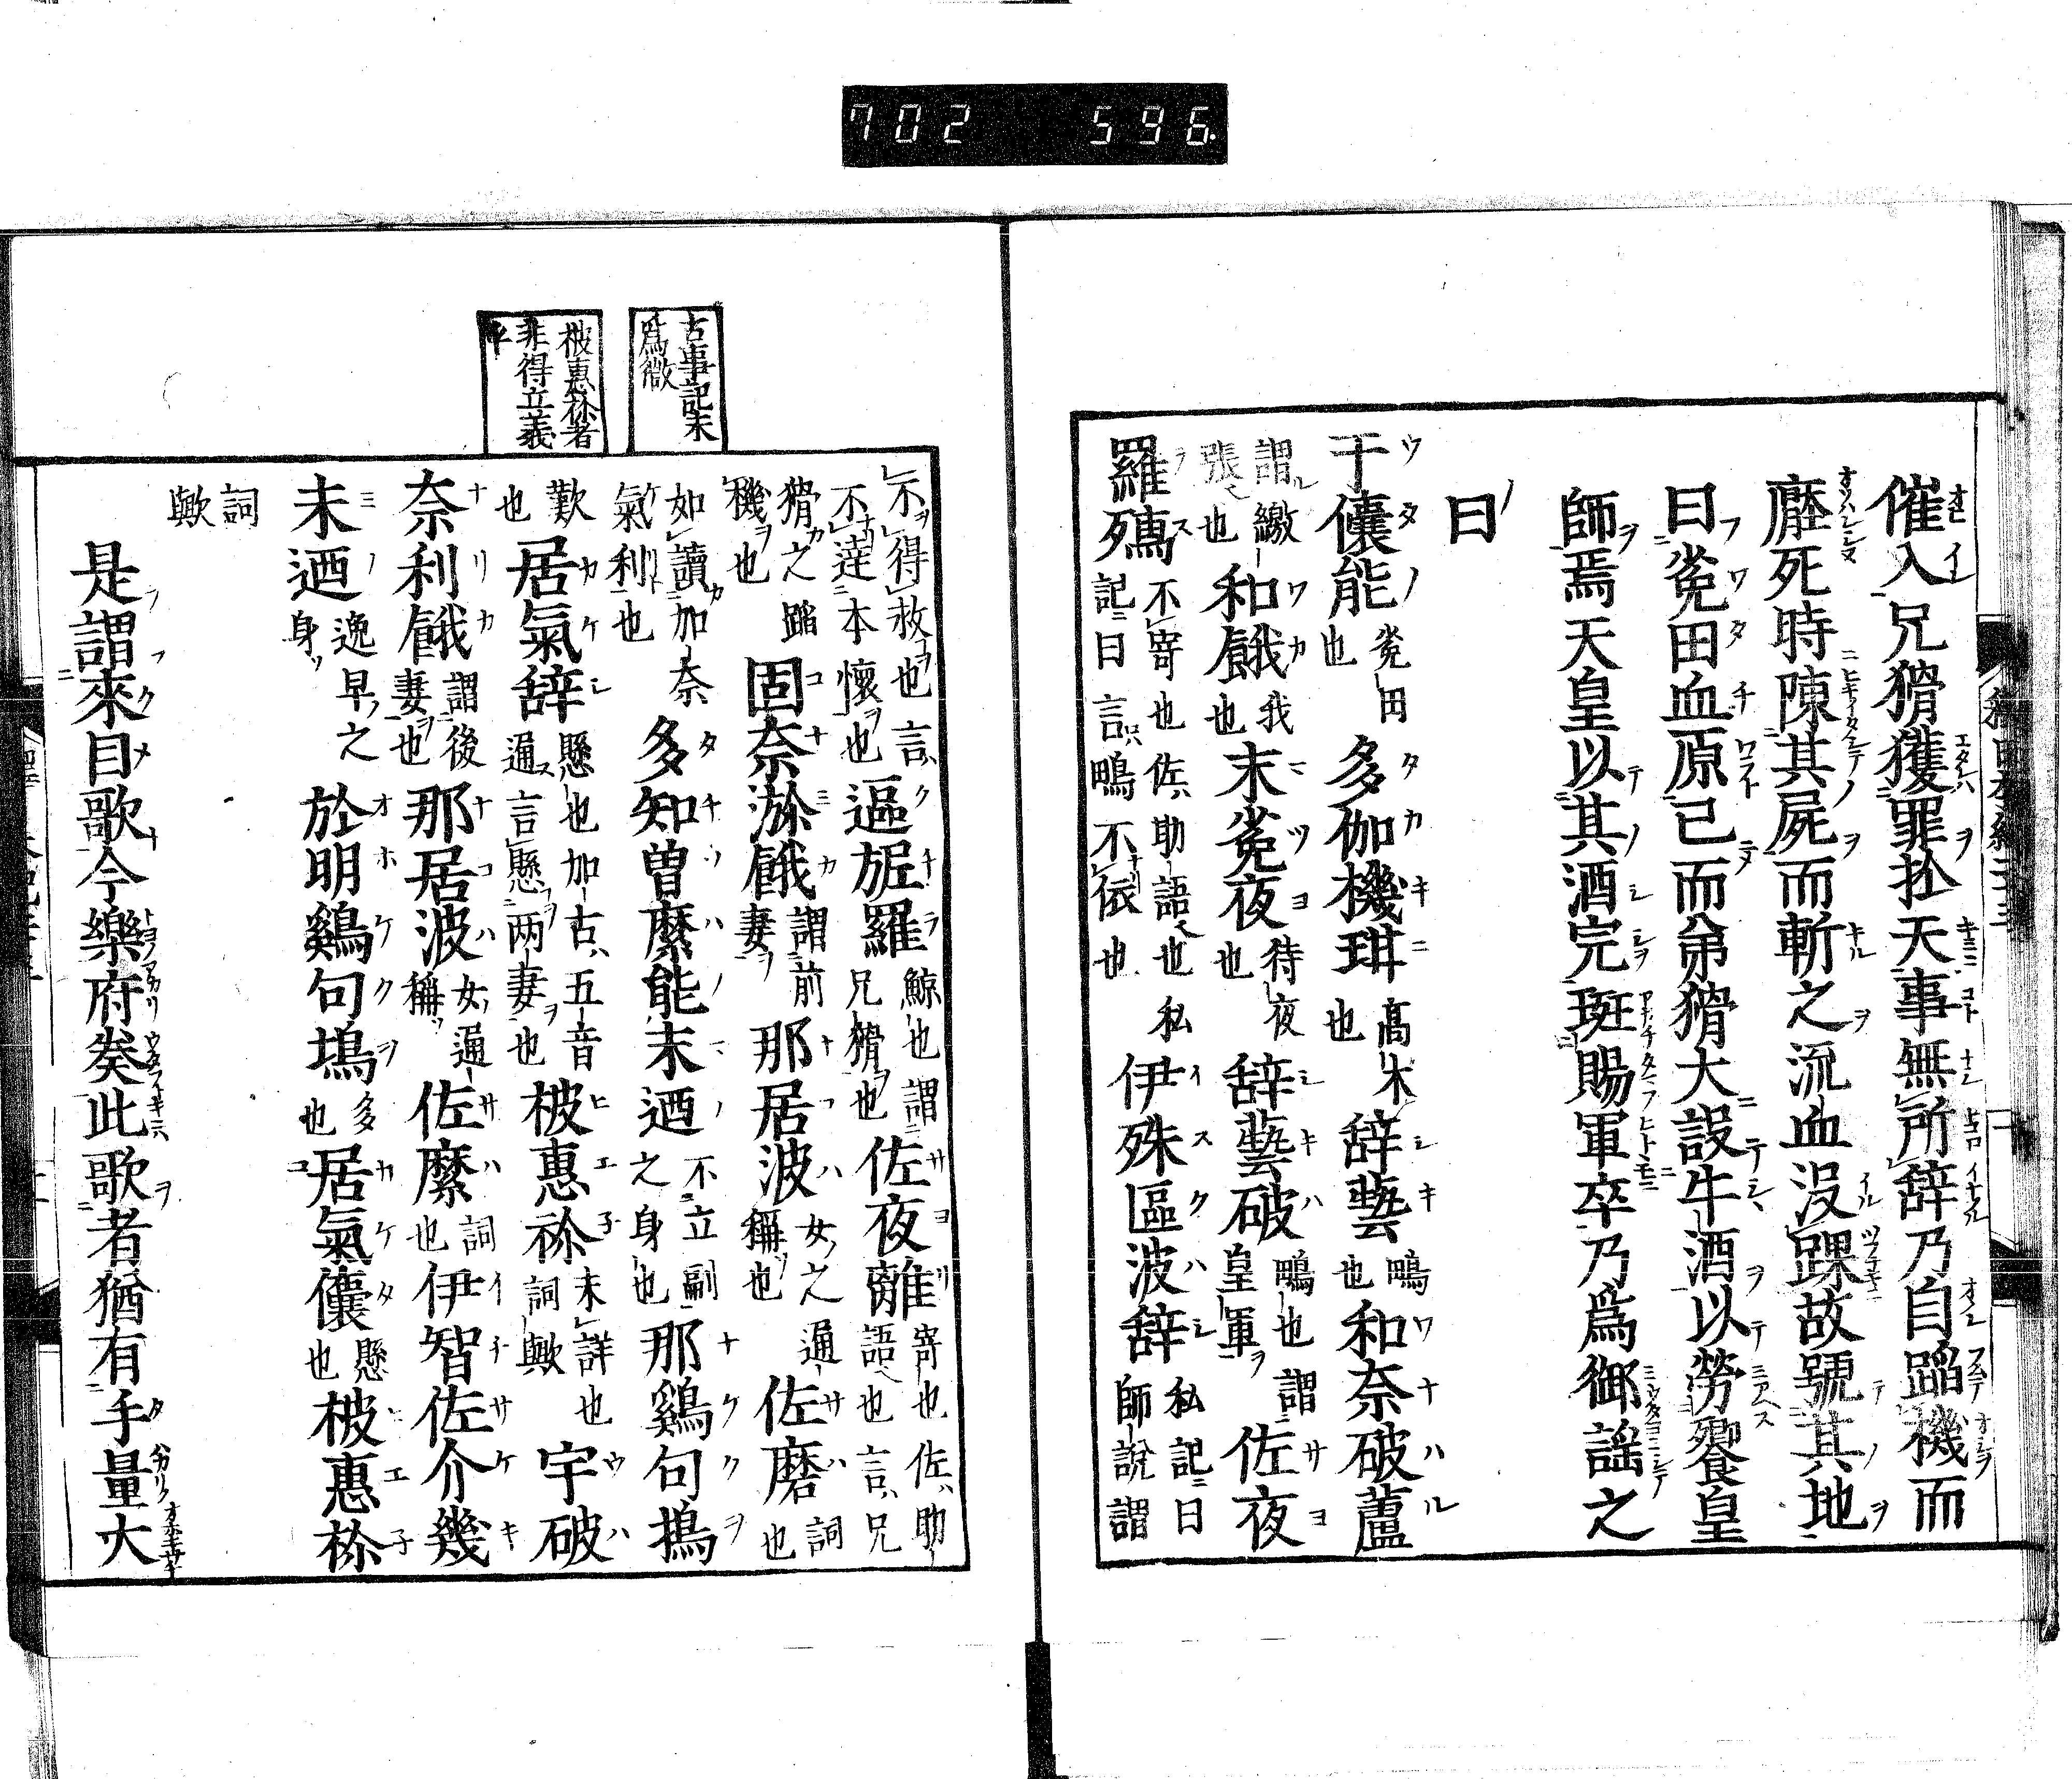 702 596
催入兄猾獲罪於天事無所辞乃自蹈機而
壓死時陳其屍而斬之流血没踝故號其地
曰菟田血原已而弟猾大設牛酒以勞饗皇
師焉天皇以其酒完班賜軍卒乃爲御謡之
曰
于儾能
菟田
也
多伽機珥
髙木
也
辞藝
鴫
也
和奈破蘆
謂繳
張也
和餓
我
也
末菟夜
待夜
也
辞藝破
鴫也謂
皇軍
佐夜
羅殇
不寄也佐助語也私
記曰言鴫不依也
伊殊區波辞
私記曰
師説謂
古事記末
爲徴
柀惠祢者
非得立義
乎
不得救也言
不達本懷也
區旎羅
鯨也謂
兄猾也
佐夜離
寄也佐助
語也言兄
猾之蹈
機也
固奈瀰餓
謂前
妻
那居波
女之通
稱也
佐磨
詞
也
如讀加奈
氣利也
多知曽縻能末迺
不立副
之身也
那鷄句塢
歎
也
居氣辞
懸也加古五音
通言懸两妻也
柀惠祢
未詳也
詞歟
宇破
奈利餓
謂後
妻也
那居波
女通
稱
佐縻
詞
也
伊智佐介幾
未迺
逸早之
身
於明鷄句塢
多
也
居氣儾
懸
也
柀惠祢
詞
歟
是謂來目歌今樂府奏此歌者猶有手量大